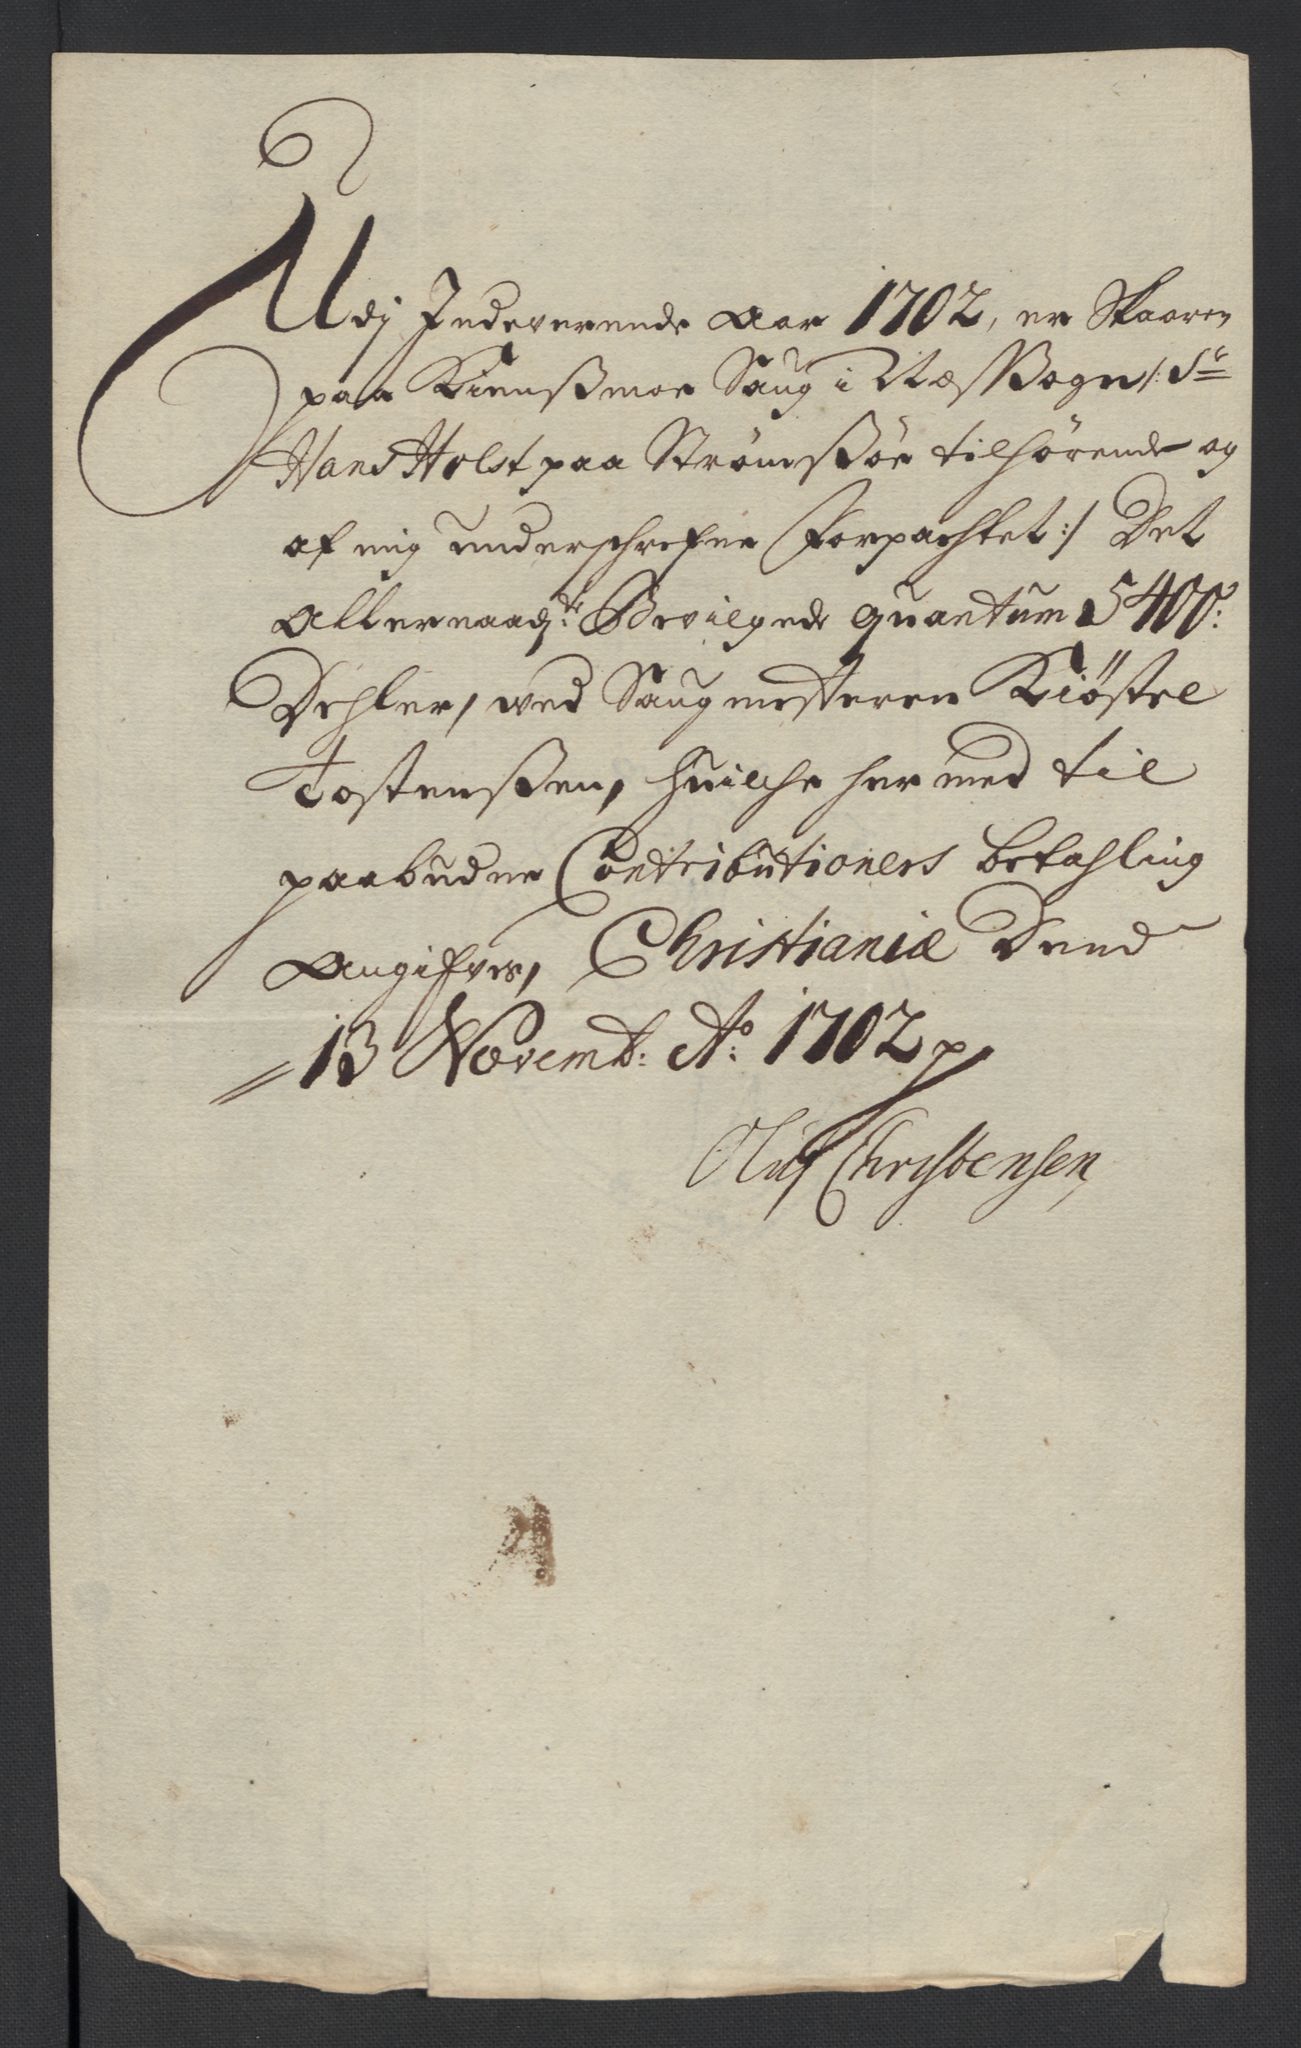 Udj Indeverende Aar 1702, er Skaaren
paa Kienßmoe Saug i Næs Sogn /: Sr
Hans Holst paa Strømßøe tilhørende og
af mig underschrefne Forpachtet :/ Det
Allernaadgte Bevilgede quantum 5400:
Dehler, ved Saugmesteren Kiøstel
Tostenßen, huilche her med til
paabudne Contributioners betahling
Angifves, Christiania Dend
13 Novemb: Ao: 1702 p
Oluf Christensen